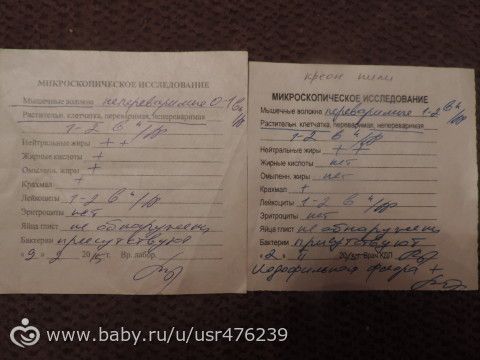 МИКРОСКОПИЧЕСКОЕ ИССЛЕДОВАНИЕ
Мышечные волокна непереваримые 0-1 в п/зр
Растительн. клетчатка, переваримая, непереваримая
1-2 в п/зр
Нейтральные жиры ++
Жирные кислоты +
Омыленн. жиры +
Крахмал +
Лейкоциты 1-2 в п/зр
Эритроциты нет
Яйца глист не обнаружены
Бактерии присутствуют
Вр. лабор.
креон пили
МИКРОСКОПИЧЕСКОЕ ИССЛЕДОВАНИЕ
Мышечные волокна переваримые 1-2 в п/зр
Растительн. клетчатка, переваримая, непереваримая
1-2 в п/зр
Нейтральные жиры ++
Жирные кислоты нет
Омыленн. жиры нет
Крахмал +
Лейкоциты 1-2 в п/зр
Эритроциты нет
Яйца глист не обнаружены
Бактерии присутствуют
Врач КДЛ
Йодофильная флора +
www.baby.ru/u/usr476239